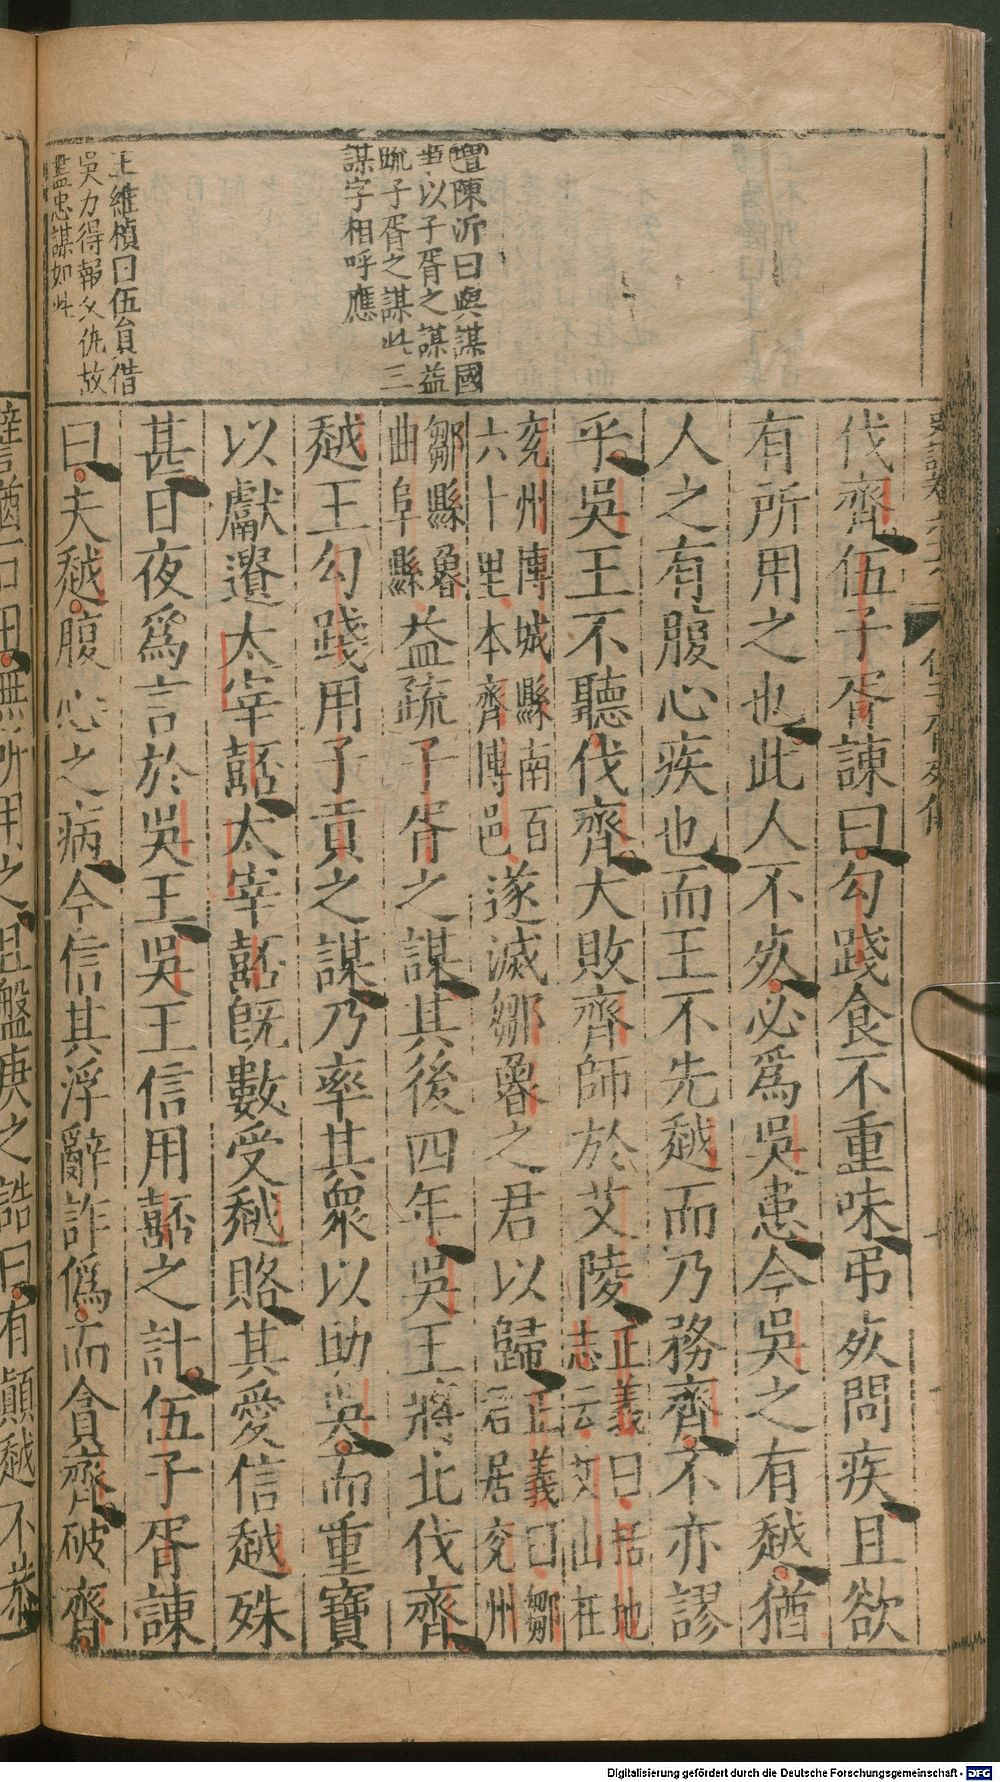 增陳沂曰與謀國
事以子胥之謀益
疏子胥之謀此三
謀字相呼應
王維楨曰伍員借
吳力得報父仇故
盡忠謀如此
伐齊伍子胥諫曰勾踐食不重味弔死問疾且欲
有所用之也此人不死必爲吳患今吳之有越猶
人之有腹心疾也而王不先越而乃務齊不亦謬
乎吳王不聽伐齊大敗齊師於艾陵正義曰括地志云艾山在
兖州博城縣南百六十里本齊博邑遂滅鄒魯之君以歸正義曰鄒君居兖州
鄒縣魯曲阜縣益疏子胥之謀其後四年吳王將北伐齊
越王勾踐用子貢之謀乃率其衆以助吳而重寶
以獻遺太宰嚭太宰嚭旣數受越賂其愛信越殊
甚日夜爲言於吳王吳王信用嚭之計伍子胥諫
曰夫越腹心之病今信其浮辭詐僞而貪齊破齊
譬猶石田無所用之且盤庚之誥曰有顚越不恭
Digitalisierung gefördert durch die Deutsche Forschungsgemeinschaft - DFG